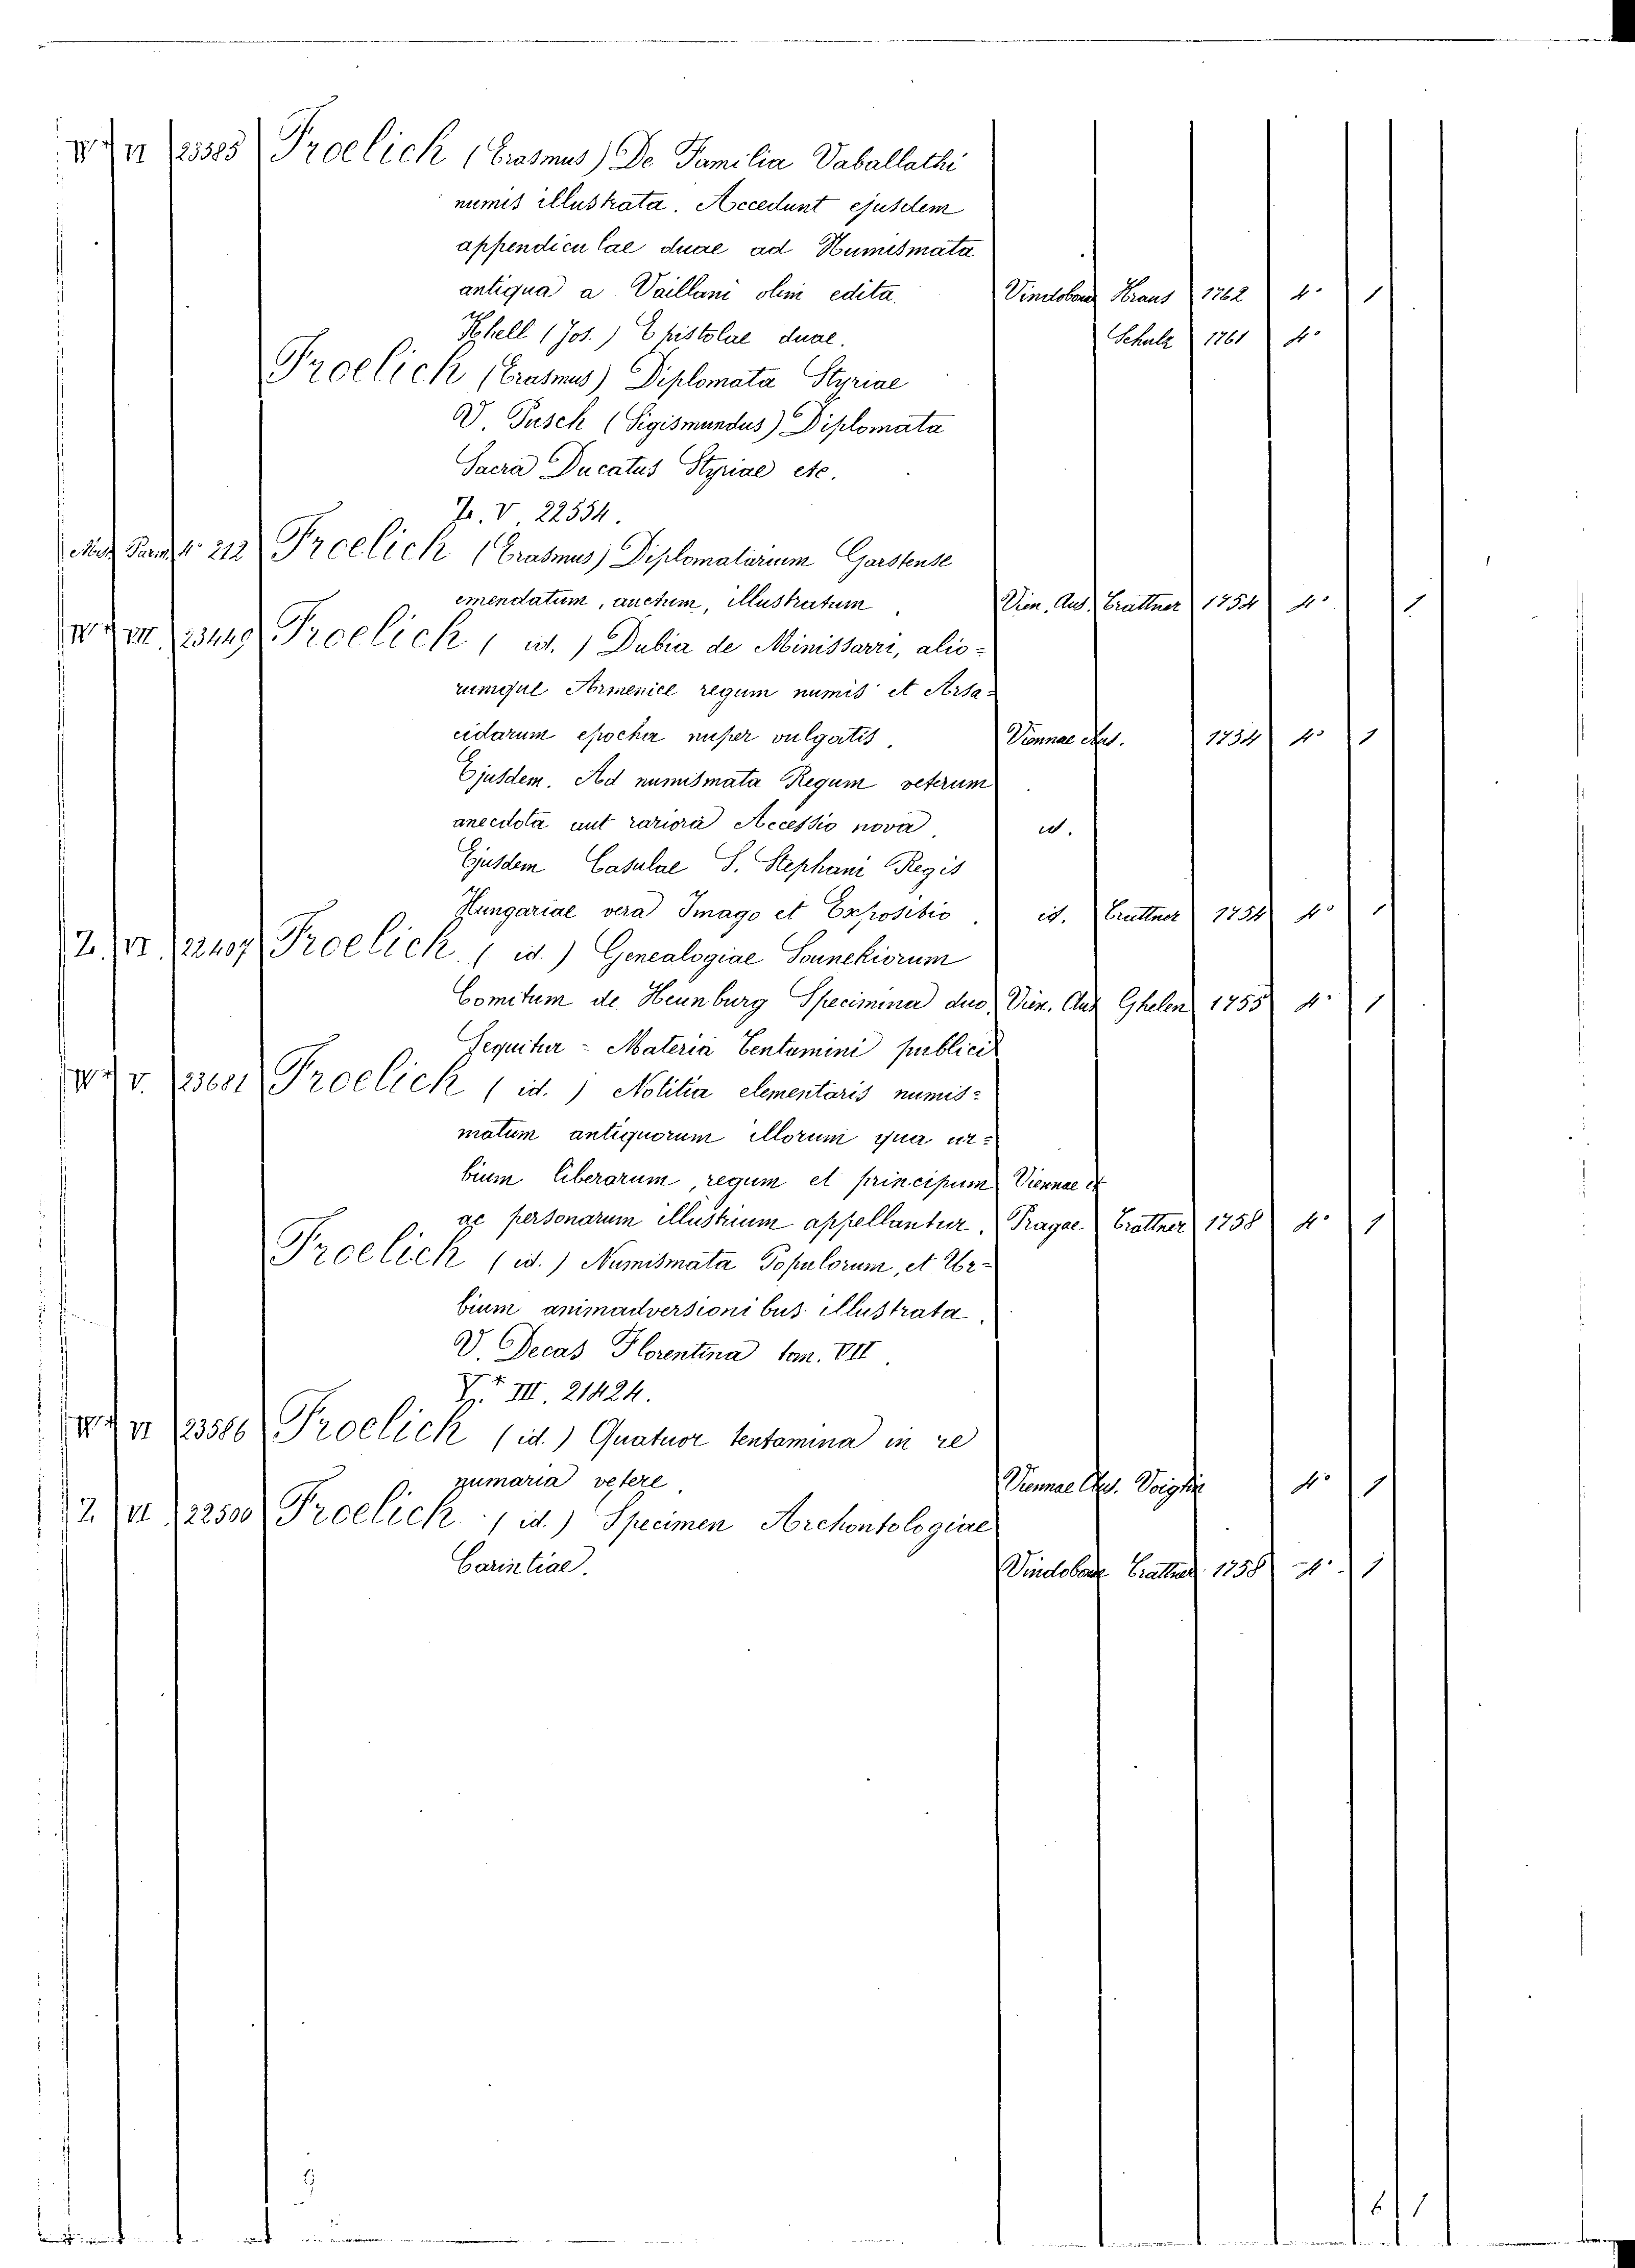 VI 23585 Froelich (Erasmus) De Familia Vaballathi
numis illustrata. Accedunt ejusdem
appendiculae duae ad Numismata
antiqua a Vaillani olim edita. Vindobonae Kraus 1762 4° 1
Khell (Jos.) Epistolae duae. Schulz 1761 4°
Froelich (Erasmus) Diplomata Styriae
V. Pusch (Sigismundus) Diplomata
Sacra Ducatus Styriae etc.
Z. V. 22554.
212 Froelich (Erasmus) Diplomatarium Garstense
emendatum, auctum, illustratum. Vien. Aus. Trattner 1754 4° 1
VII. 23449 Froelich ( id. ) Dubia de Minissarri, alio-
rumque Armenice regum numis et Arsa-
cidarum epocha nuper vulgatis. Viennae Aus. 1754 4° 1
Ejusdem. Ad numismata Regum veterum
anecdota aut rariora Accessio nova. id.
Ejusdem Casulae S. Stephani Regis
Hungariae vera Imago et Expositio. id. Trattner 1754 4° 1
Z. VI. 22407 Froelich ( id. ) Genealogiae Sounekiorum
Comitum de Heunburg Specimina duo. Vien. Aus Ghelen 1755 4° 1
Sequitur = Materia Tentamini publici
V. 23681 Froelich ( id. ) Notitia elementaris numis-
matum antiquorum illorum qua ur-
bium liberarum, regum et principum Viennae et
ac personarum illustrium appellantur. Pragae Trattner 1758 4° 1
Froelich ( id. ) Numismata Populorum, et Ur-
bium animadversionibus illustrata.
V. Decas Florentina tom. VII.
III. 21424.
VI 23586 Froelich (id.) Quatuor tentamina in re
numaria vetere. Viennae Aus. Voigtin 4° 1
Z. VI 22500 Froelich (id.) Specimen Archontologiae
Carintiae. Vindobonae Trattner 1758 4° 1
6 1